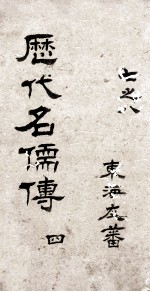 七之八
歷代名儒傳 四
東海庫蕃